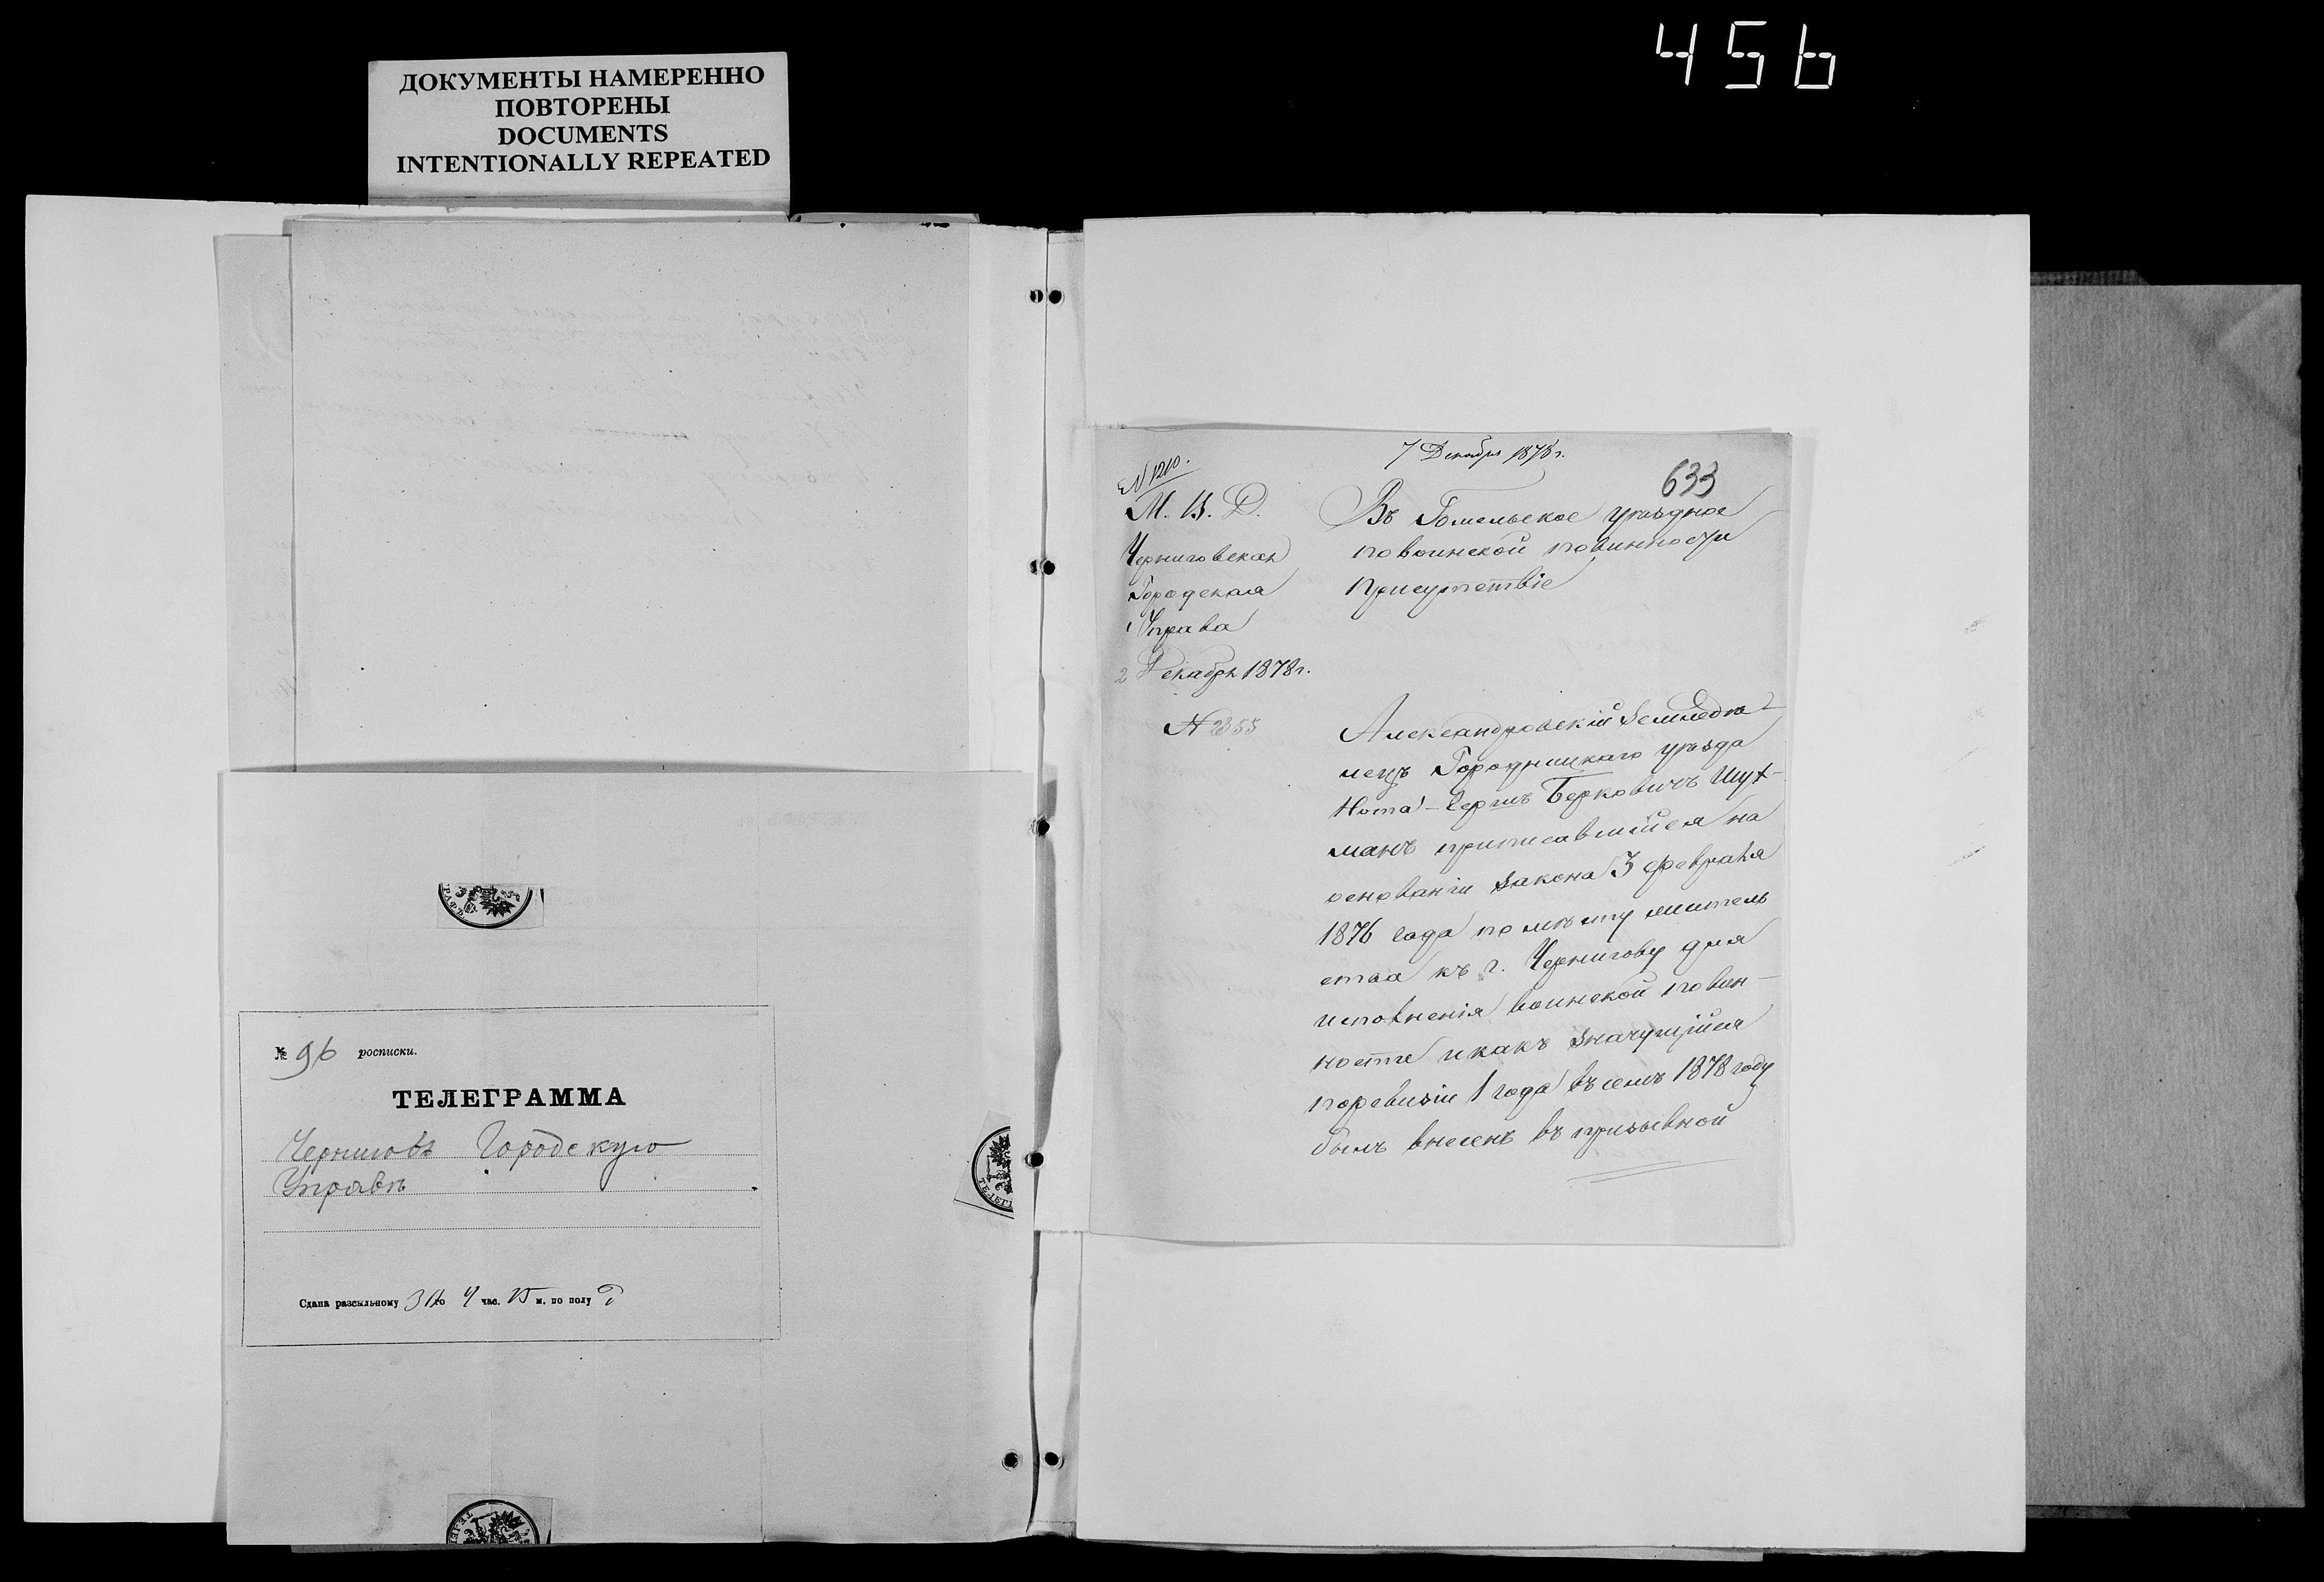 456
ДОКУМЕНТЫ НАМЕРЕННО
ПОВТОРЕНЫ
DOCUMENTS
INTENTIONALLY REPEATED
№ 96 росписки.
ТЕЛЕГРАММА
Черниговъ Городскую
Управѣ
Сдана разсыльному 31го 4 час. 15 м. по полу д
7 Декабря 1878 г.
633
№ 1210.
М. В. Д.
Черниговская
Городская
Управа
2 Декабря 1878 г.
№ 2855
Въ Гомельское уѣздное
по воинской повинности
Присутствіе
Александровскій Землевла-
лецъ Городницкаго уѣзда
Нота-Герцъ Берковичъ Шух-
манъ приписавшійся на
основаніи закона 3 февраля
1876 года по мѣсту житель
ства къ г. Чернигову для
исполненія воинской повин-
ности и какъ значущійся
по ревизіи 1 года въ семъ 1878 году
былъ внесенъ въ призывной